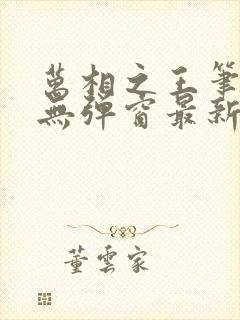 萬相之王筆
無彈窗最新
董雲家